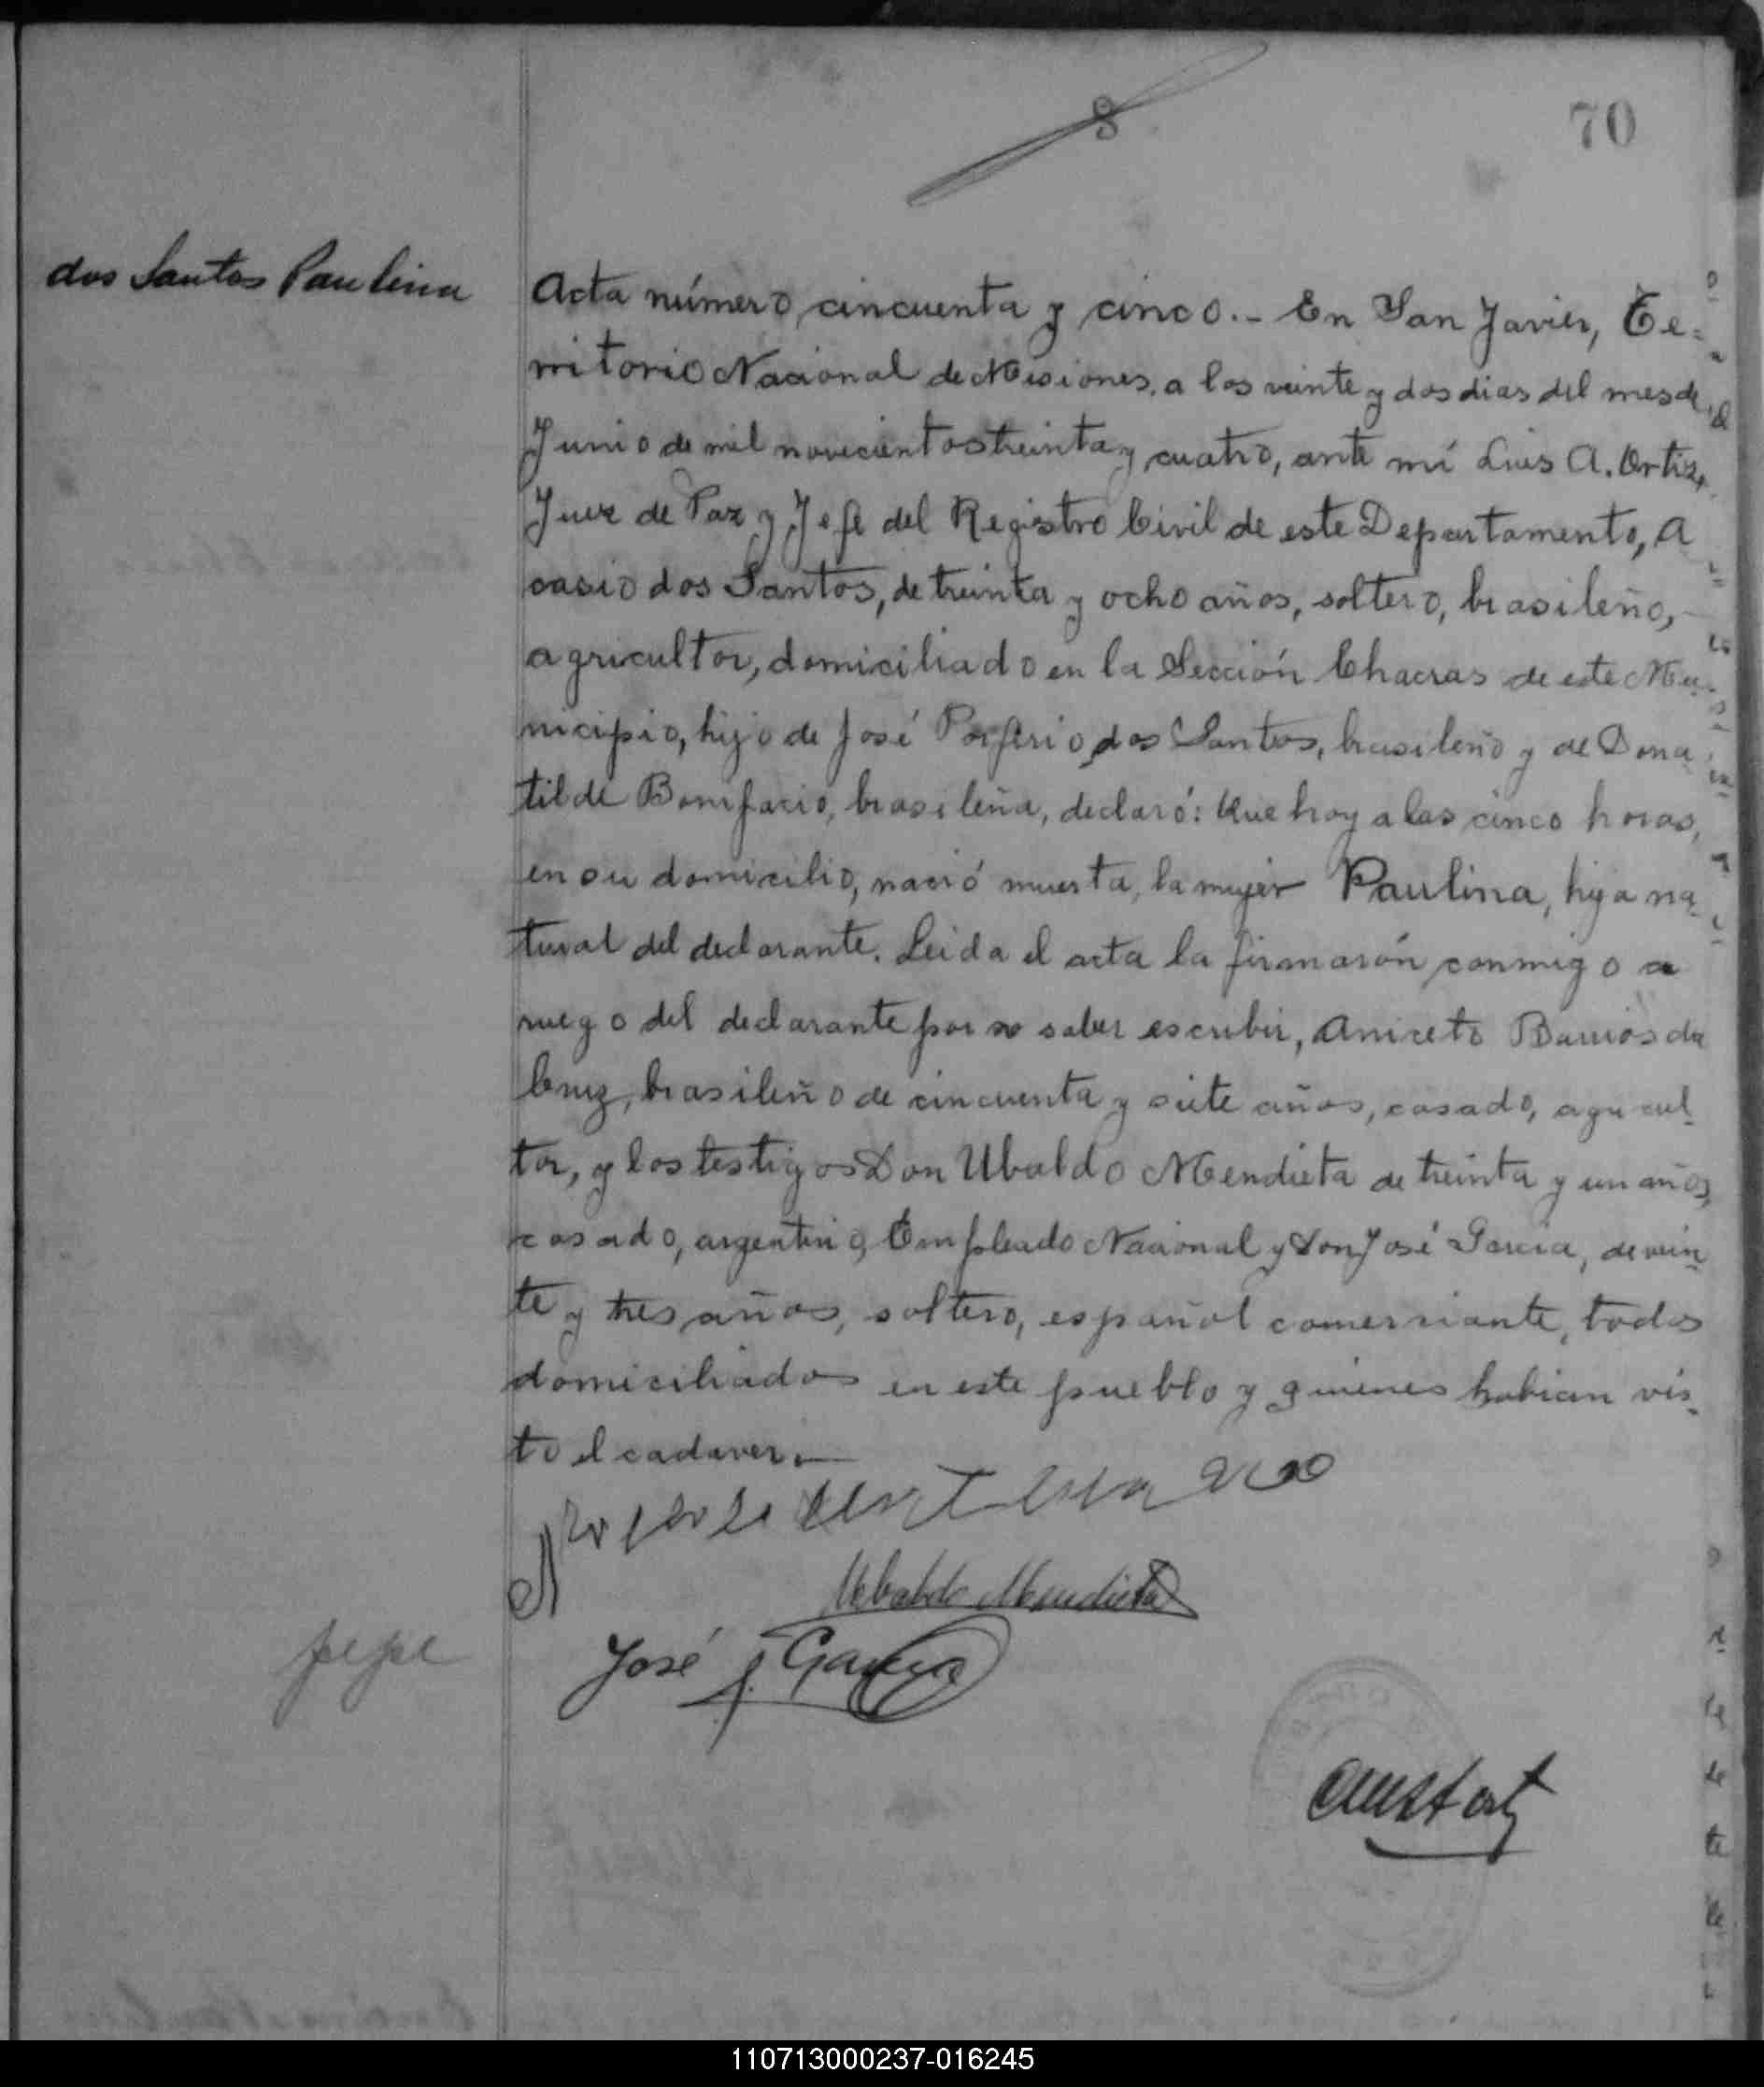 70
8
dos Santos Paulina
Acta número cincuenta y cinco.- En San Javier, Te=
rritorio Nacional de Misiones, a los veinte y dos dias del mes de
Junio de mil novecientos treinta y cuatro, ante mí Luis A. Ortiz,
Juez de Paz y Jefe del Registro Civil de este Departamento, A
casio dos Santos, de treinta y ocho años, soltero, brasileño,
agricultor, domiciliado en la Sección Chacras de este Mu-
nicipio, hijo de José Porferio dos Santos, brasileño y de Dona
tilde Bonifacio, brasileña, declaró: Que hoy a las cinco horas,
en su domicilio, nació muerta, la mujer Paulina, hija na-
tural del declarante. Leida el acta la firmarón conmigo a
ruego del declarante por no saber escribir, Aniceto Barrios da
Cruz, brasileño de cincuenta y siete años, casado, agricul-
tor, y los testigos Don Ubaldo Mendieta de treinta y un años,
casado, argentino, Empleado Nacional y Don José Garcia, de vein-
te y tres años, soltero, español comerciante, todos
domiciliados en este pueblo y quienes habian vis-
to el cadaver.-
Ubaldo Mendieta
pepe
José J. Garcia
110713000237-016245